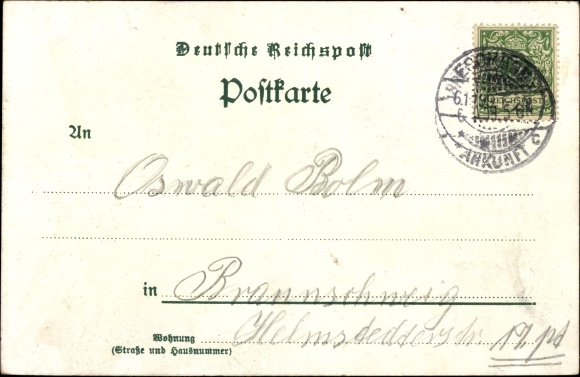 Deutsche Reichspost
Postkarte
An
Oswald Bolm
in Braunschweig
Wohnung
(Straße und Hausnummer)
Helmstedterstr 19, pt
REICHSPOST
ANKUNFT C